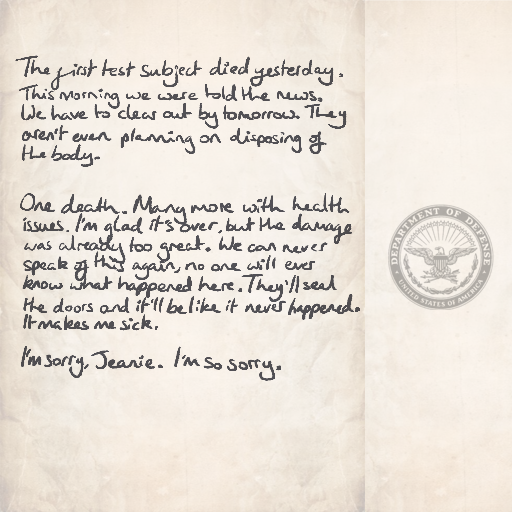 The first test subject died yesterday.
This morning we were told the news.
We have to clear out by tomorrow. They
aren't even planning on disposing of
the body.
One death. Many more with health
issues. I'm glad it's over, but the damage
was already too great. We can never
speak of this again, no one will ever
know what happened here. They'll seal
the doors and it'll be like it never happened.
It makes me sick.
I'm sorry, Jeanie. I'm so sorry.
DEPARTMENT OF DEFENSE
UNITED STATES OF AMERICA